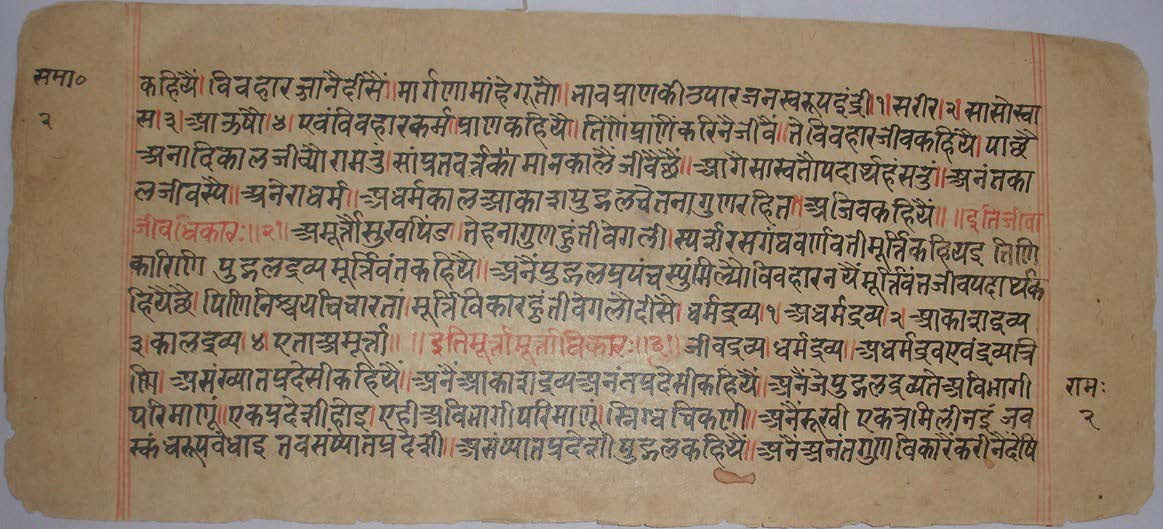 समा॰
२
कहियैं। विवहार जांनै दीसैं। मार्गणा मांहे गततौ। भाव प्राण की उपारजन स्वरूप इंद्री। १। सरीर। २। सासोस्वा
स। ३। आऊषौ। ४। एवं विवहार कर्म प्राण कहियै। तिणैं प्राणैं करिनै जीवै। ते विवहार जीव कहियै। पाछै
अनादि काल जीव्यौ। सांप्रत वर्त्त मान कालैं जीवै छै॥ आगै सास्वतौ पदार्थ हं सतुं॥ अनंत का
ल जीवस्यै॥ अनै राधर्म। अधर्म काल आकाश पुद्गल चेतना गुण रहित। अजिव कहियैं॥ ॥ इति जीवा
जीवाधिकारः॥ २॥ अमूर्त्तौ सुखपिंड। तेहना गुण हुंती वेगली। स्पर्श रस गंध वर्णवती मूर्त्ति कहियइ तिणि
कारिणि पुद्गल द्रव्य मूर्त्तिवंत कहियै॥ अनैं पुद्गल प्रपंच स्युं मिल्यौ विवहार नयैं मूर्त्तिवंत जीव पदार्थ क
हियैं छै। पिणि निश्चय विचारतां। मूर्त्ति विकार हुंती वेगलो दीसै। धर्म द्रव्य। १। अधर्म द्रव्य। २। आकाश द्रव्य
३। काल द्रव्य। ४। एता अमूर्त्ता॥ ॥ इति मूर्त्तामूर्त्ताधिकारः॥ ३॥ जीव द्रव्य। धर्म द्रव्य॥ अधर्म द्रव एवं द्रव्य त्रि
णि। असंख्यात प्रदेसी कहियैं॥ अनैं आकाश द्रव्य अनंत प्रदेसी कहियैं॥ अनैं जे पुद्गल द्रव्य ते अविभागी
परिमाणूं। एक प्रदेशी होइ। एही अविभागी परिमाणू। स्निग्ध चिकणी॥ अनै रूखी एकत्र मिली नइं जव
स्कंध रूप वंधाइ तव संष्यात प्रदेशी॥ असंष्यात प्रदेशी पुद्गल कहियैं॥ अनै अनंत गुण विकारैं करीनै देषि
रामः
२